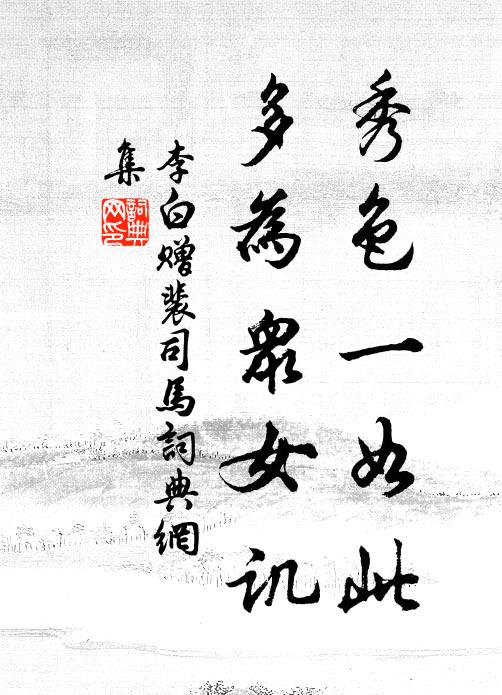 秀色一如此
多為眾女譏
李白贈裴司馬詞典網
集
詞典
网印